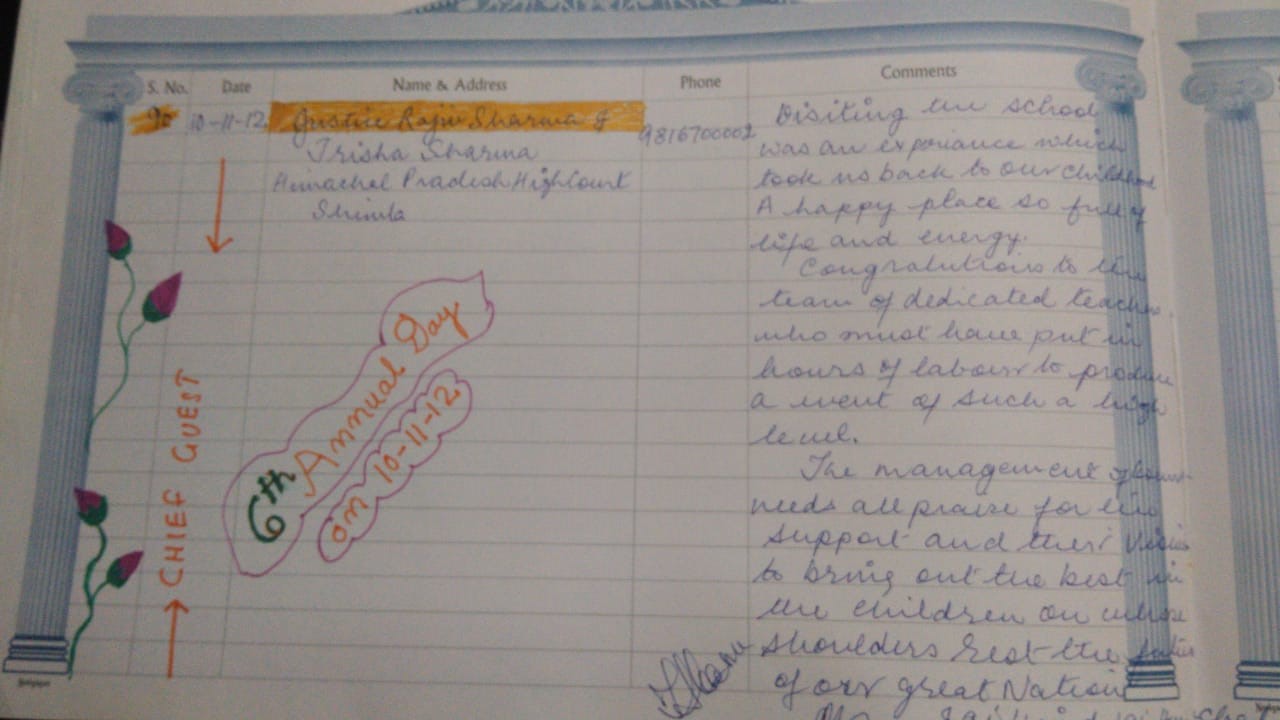 S. No. Date Name & Address Phone Comments
90 10-11-12 Justice Rajiv Sharma &
Trisha Sharma
Himachal Pradesh High Court
Shimla
9816700002
Visiting the school
was an experiance which
took us back to our childhood
A happy place so full of
life and energy.
Congratulations to the
team of dedicated teachers
who must have put in
hours of labour to produce
a event of such a high
level.
The management of
needs all praise for
support and their vision
to bring out the best in
the children on whose
shoulders rest the future
of our great Nation
CHIEF GUEST
6th Annual Day
on 10-11-12